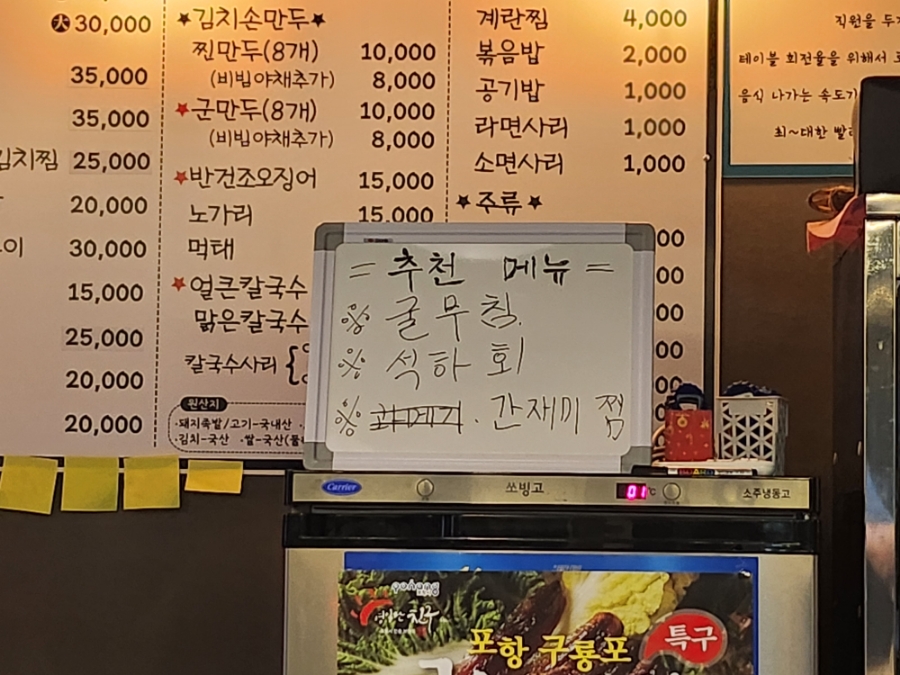 大 30,000
35,000
35,000
김치찜 25,000
20,000
이 30,000
15,000
25,000
20,000
20,000
★김치손만두★
찐만두(8개) 10,000
(비빔야채추가) 8,000
★군만두(8개) 10,000
(비빔야채추가) 8,000
★반건조오징어 15,000
노가리 15,000
먹태
★얼큰칼국수
맑은칼국수
칼국수사리 {
원산지
·돼지족발/고기-국내산
·김치-국산 ·쌀-국산
계란찜 4,000
볶음밥 2,000
공기밥 1,000
라면사리 1,000
소면사리 1,000
★주류★
00
00
00
00
00
직원을 두
테이블 회전율을 위해서
음식 나가는 속도가
최~대한 빨리
= 추천 메뉴 =
※ 굴무침.
※ 석하 회
※ 과메기. 간재미 찜
Carrier 쏘빙고 01℃ 소주냉동고
영일만 친구
포항 구룡포 특구